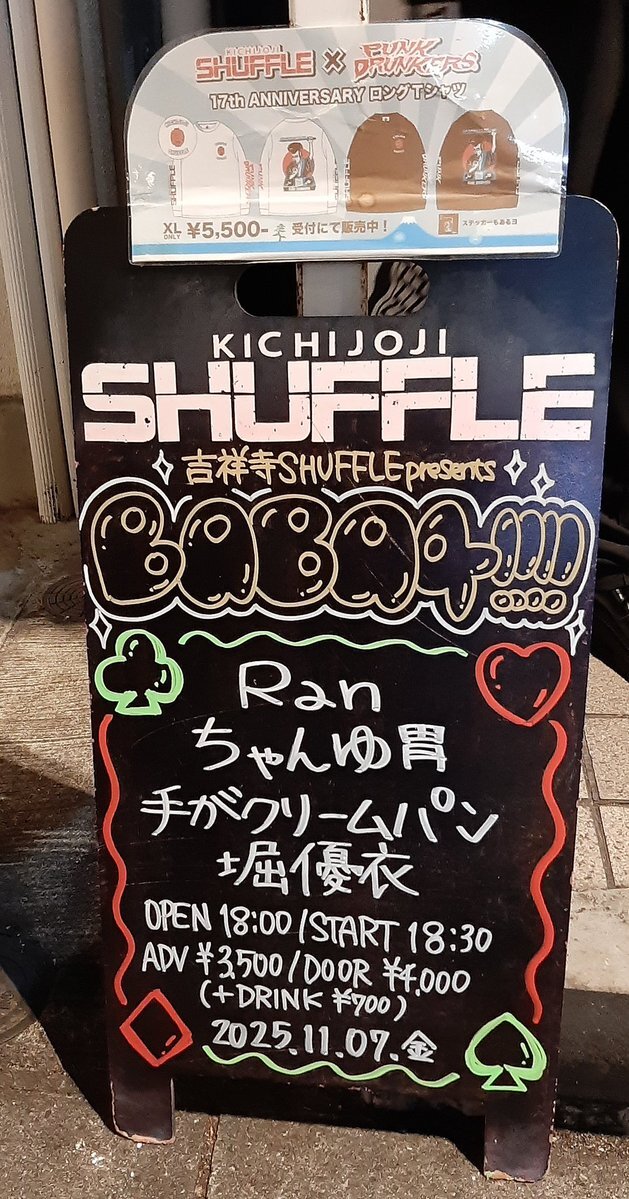 KICHIJOJI
SHUFFLE × PUNK DRUNKERS
17th ANNIVERSARY ロングTシャツ
XL ONLY ¥5,500- 受付にて販売中！
ステッカーもあるヨ
KICHIJOJI
SHUFFLE
吉祥寺SHUFFLE presents
BABAチ!!!!
Ran
ちゃんゆ胃
手がクリームパン
堀優衣
OPEN 18:00/START 18:30
ADV ¥3,500/DOOR ¥4,000
(+DRINK ¥700)
2025.11.07.金